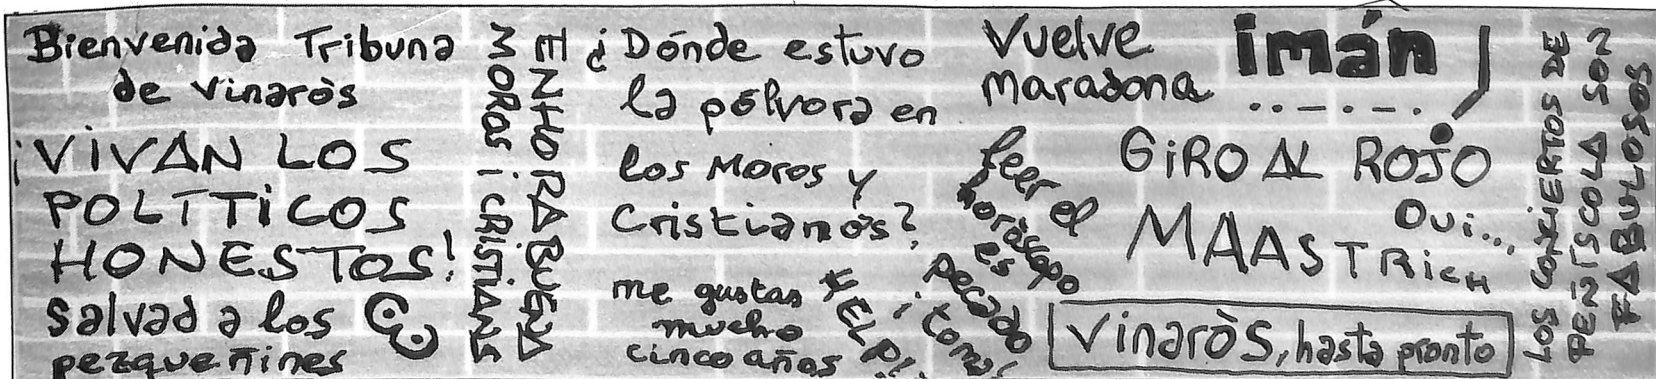 Bienvenida Tribuna
de Vinaròs
¡VIVAN LOS
POLÍTICOS
HONESTOS!
Salvad a los
pezqueñines
ENHORABUENA
MOROS i CRISTIANS
¿Dónde estuvo
la pólvora en
los Moros y
Cristianos?
me gustas
mucho
cinco años
HELP!!
Vuelve
Maradona
imán
leer el
horóscopo
es
pecado
¡toma!
GIRO AL ROJO
Oui...
MAASTRICH
Vinaròs, hasta pronto
LOS CONCIERTOS DE
PEÑÍSCOLA SON
FABULOSOS